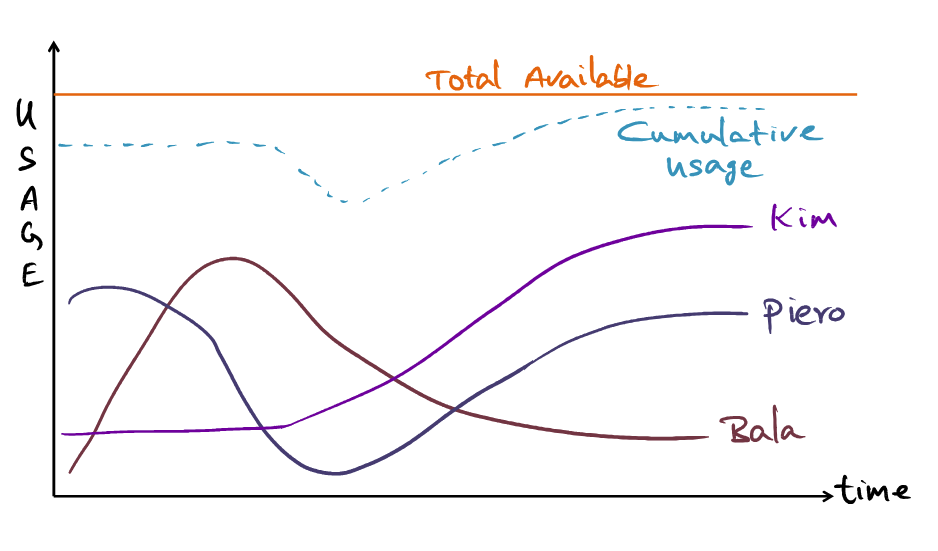 Total Available
USAGE
Cumulative
usage
Kim
Piero
Bala
time